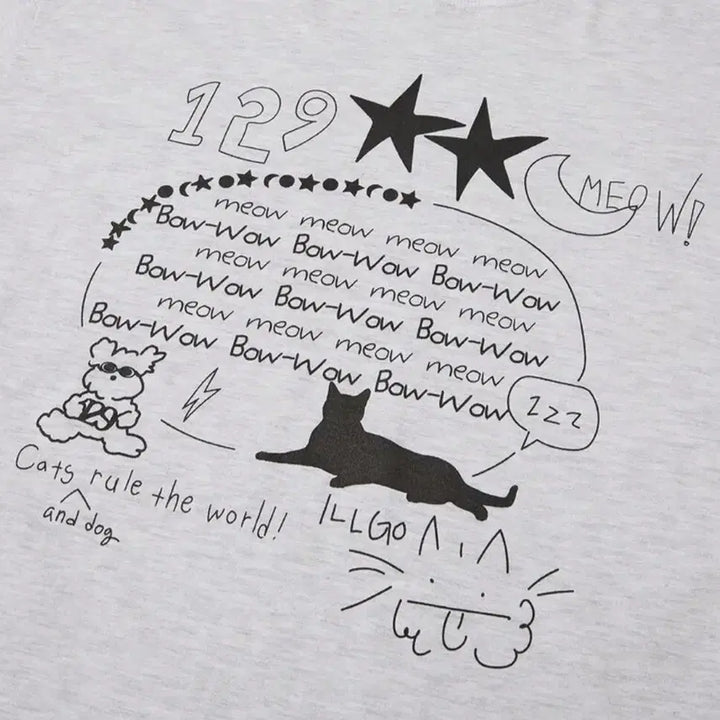 129
MEOW!
meow meow meow meow
Bow-Wow Bow-Wow Bow-Wow
meow meow meow meow
Bow-Wow Bow-Wow Bow-Wow
meow meow meow meow
Bow-Wow Bow-Wow Bow-Wow
zzz
129
Cats rule the world!
and dog
ILLGO